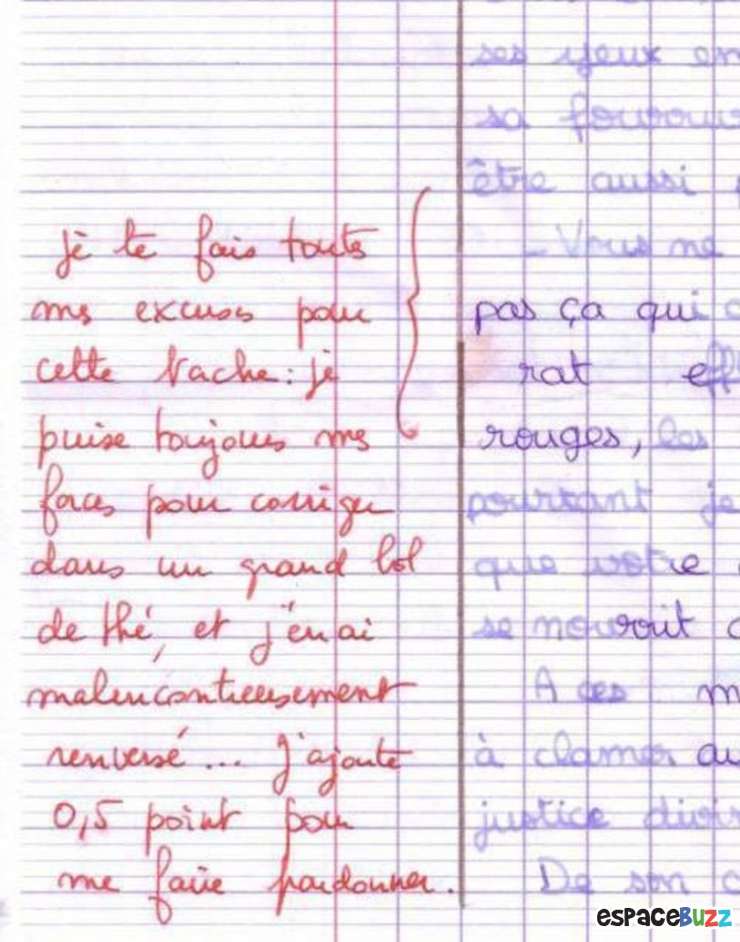 je te fais toutes
mes excuses pour
cette tache : je
puise toujours mes
forces pour corriger
dans un grand bol
de thé, et j'en ai
malencontreusement
renversé... j'ajoute
0,5 point pour
me faire pardonner.
ses yeux en
sa
être aussi
- Vous ne
pas ça qui
rat eff
rouges, les
pourtant je
que votre
se nourrit
A ces m
à clamer au
justice divin
De son c
espaceBuzz